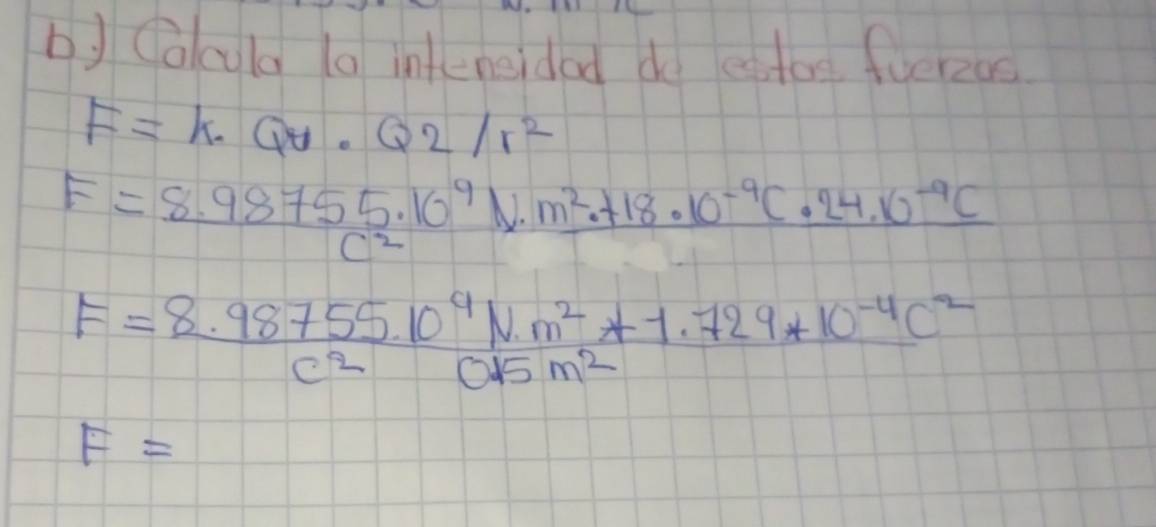 b.) Calcula la intensidad de estas fuerzas.
F = k. Q1 . Q2 / r²
F = 8.98755.10⁹ N.m².+18.10⁻⁹C.24.10⁻⁹C
C²
F = 8.98755.10⁹ N.m² * 1.729*10⁻⁴C²
C² 0.15 m²
F =